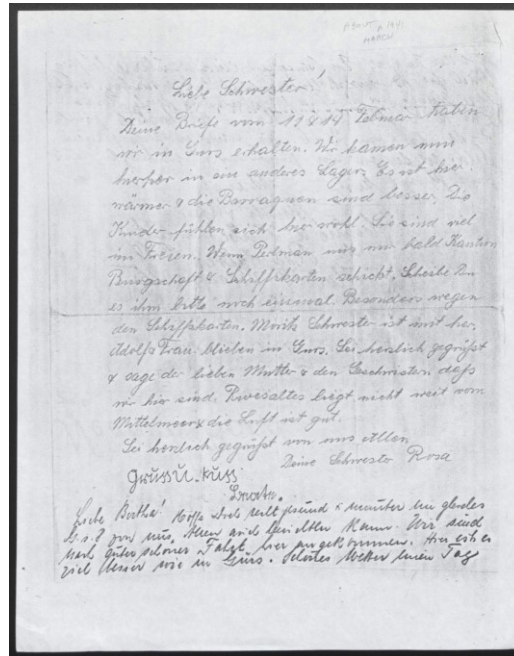 ABOUT 1941
MARCH
Liebe Schwester!
Deine Briefe vom 11 & 14 Februar hatten
wir in Gurs erhalten. Wir kamen nun
hierher in ein anderes Lager. Es ist hier
wärmer & die Barraquen sind besser. Die
Kinder fühlen sich hier wohl. Sie sind viel
im Freien. Wenn Perlman uns nur bald Kaution
Burgschaft & Schiffskarten schickt. Schreibe Du
es ihm bitte noch einmal. Besonders wegen
den Schiffskarten. Moritz Schwester ist mit hier,
Adolfs Frau blieben in Gurs. Sei herzlich gegrüßt
& sage der lieben Mutter & den Geschwistern daß
wir hier sind. Rivesaltes liegt nicht weit vom
Mittelmeer & die Luft ist gut.
Sei herzlich gegrüßt von uns Allen
Deine Schwester Rosa
GRUSS U. KUSS
Liebe Bertha! Hoffe Dich recht gesund & munter ein gleiches
G.s.D von uns Allen auch berichten kann. Wir sind
nach guter schöner Fahrt hier angekommen. Hier ist es
viel besser wie in Gurs. Schönes Wetter einen Tag